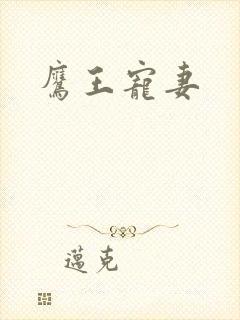 鷹王寵妻
邁克